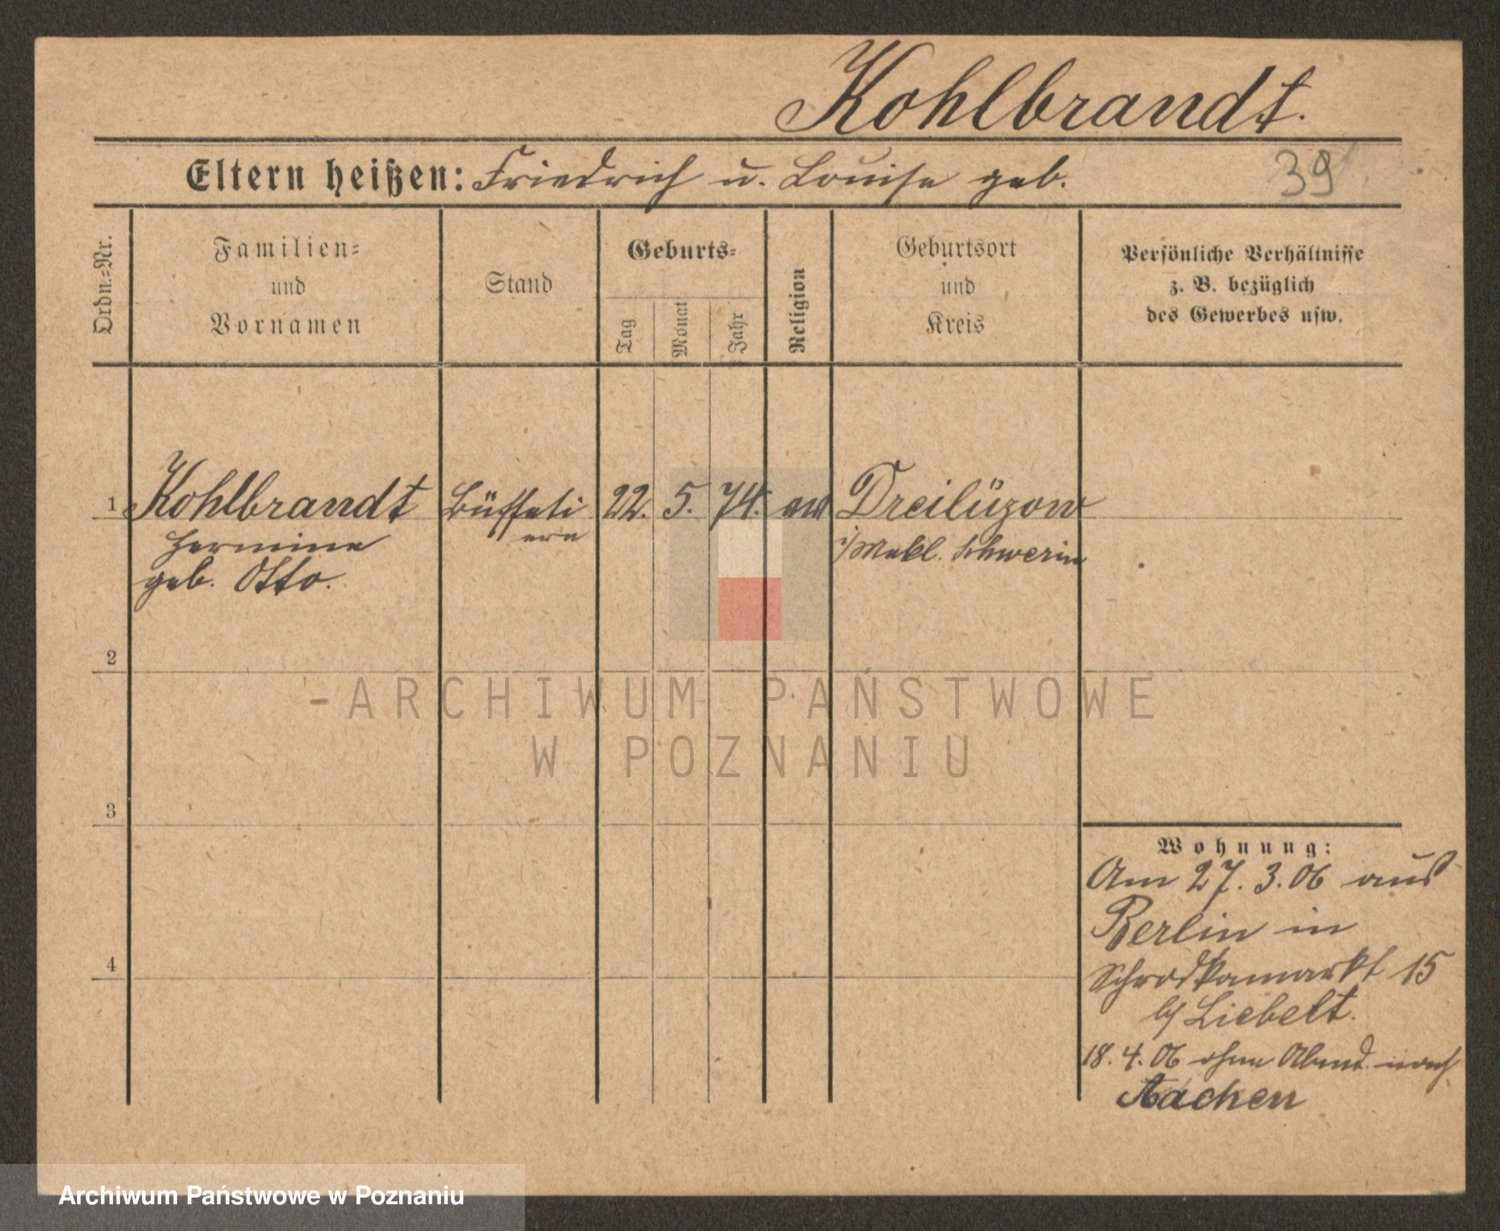 Kohlbrandt.
Eltern heißen: Friedrich u. Louise geb.
39
Ordn.=Nr.
Familien=
und
Vornamen
Stand
Geburts=
Tag
Monat
Jahr
Religion
Geburtsort
und
Kreis
Persönliche Verhältnisse
z. B. bezüglich
des Gewerbes usw.
1 Kohlbrandt Büffeti 22. 5. 74. ev Dreilüzow
Hermine ere i/Mekl. Schwerin
geb. Otto.
2
ARCHIWUM PAŃSTWOWE
W POZNANIU
3
4
Wohnung:
Am 27.3.06 aus
Berlin in
Schrodkamarkt 15
b/ Liebelt.
18.4.06 ohne Abmd. nach
Aachen
Archiwum Państwowe w Poznaniu